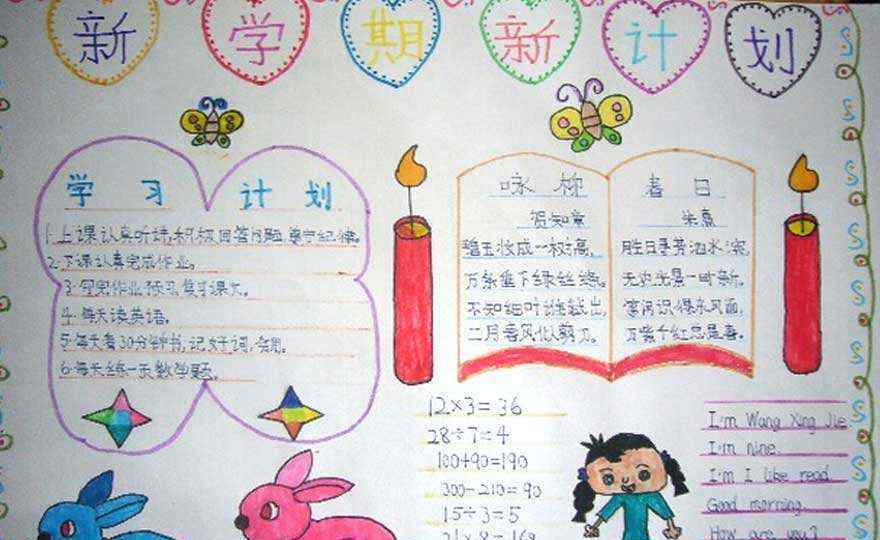 新学期新计划
学习计划
1.上课认真听讲,积极回答问题,遵守纪律。
2.下课认真完成作业。
3.写完作业预习,复习课文。
4.每天读英语。
5.每天看30分钟书,记好词,好句。
6.每天练一页数学题。
咏柳
贺知章
碧玉妆成一树高,
万条垂下绿丝绦。
不知细叶谁裁出,
二月春风似剪刀。
春日
朱熹
胜日寻芳泗水滨,
无边光景一时新。
等闲识得东风面,
万紫千红总是春。
12×3=36
28÷7=4
100+90=190
300-210=90
15÷3=5
21×8=168
I'm Wang Xing Jie
I'm nine.
I'm I like read
Good morning.
How are you?